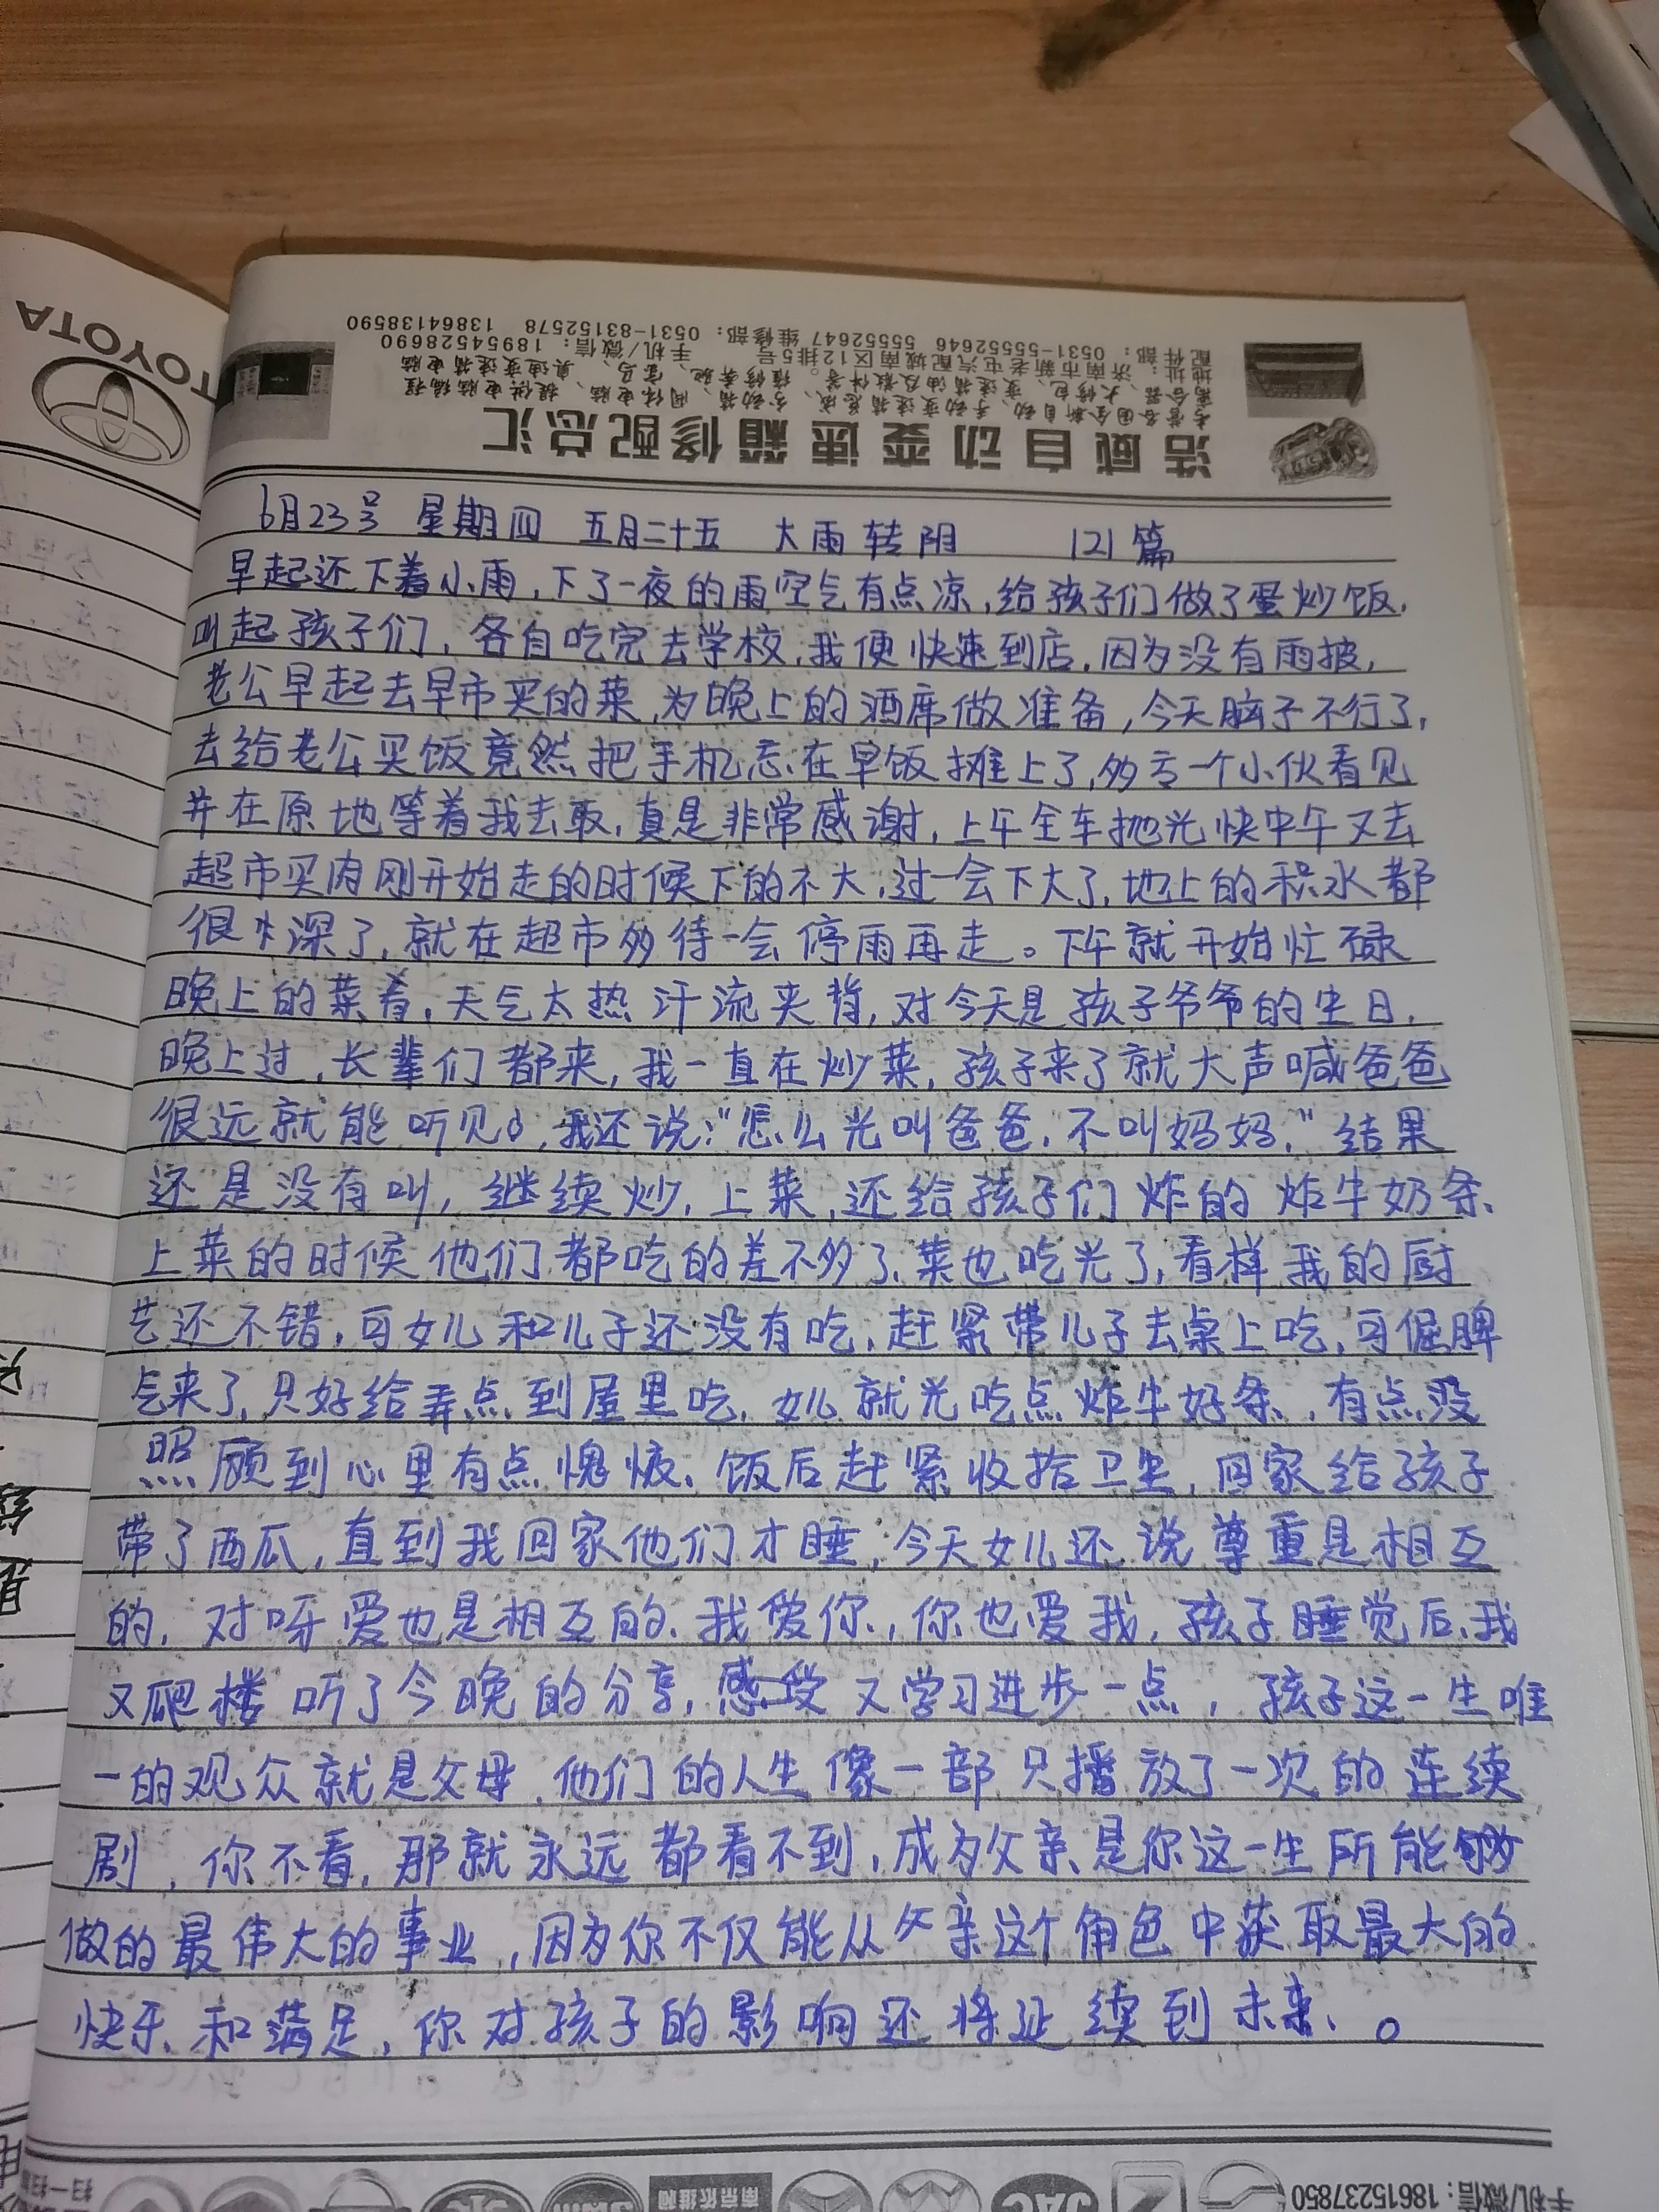 TOYOTA
TOYOTA
浩威自动变速箱修配总汇
地址：济南市新老屯汽配城南区12排5号 手机/微信：18954528690
配件部：0531-55552646 55552647 维修部：0531-83152578 13864138590
6月23号 星期四 五月二十五 大雨转阴 121篇
早起还下着小雨，下了一夜的雨空气有点凉，给孩子们做了蛋炒饭，
叫起孩子们，各自吃完去学校，我便快速到店，因为没有雨披，
老公早起去早市买的菜，为晚上的酒席做准备，今天脑子不行了，
去给老公买饭竟然把手机忘在早饭摊上了，多亏一个小伙看见
并在原地等着我去取，真是非常感谢，上午全车抛光快中午又去
超市买肉刚开始走的时候下的不大，过一会下大了，地上的积水都
很深了，就在超市多待一会停雨再走。下午就开始忙碌
晚上的菜肴，天气太热汗流夹背，对今天是孩子爷爷的生日，
晚上过，长辈们都来，我一直在炒菜，孩子来了就大声喊爸爸
很远就能听见，我还说：“怎么光叫爸爸，不叫妈妈，”结果
还是没有叫，继续炒，上菜，还给孩子们炸的炸牛奶条、
上菜的时候他们都吃的差不多了、菜也吃光了，看样我的厨
艺还不错，可女儿和儿子还没有吃，赶紧带儿子去桌上吃，可倔脾
气来了，只好给弄点到屋里吃，女儿就光吃点炸牛奶条，有点没
照顾到心里有点愧疚、饭后赶紧收拾卫生，回家给孩子
带了西瓜，直到我回家他们才睡，今天女儿还说尊重是相互
的，对呀爱也是相互的、我爱你，你也爱我，孩子睡觉后、我
又爬楼听了今晚的分享，感受又学习进步一点，孩子这一生唯
一的观众就是父母，他们的人生像一部只播放了一次的连续
剧，你不看，那就永远都看不到，成为父亲是你这一生所能够
做的最伟大的事业，因为你不仅能从父亲这个角色中获取最大的
快乐和满足，你对孩子的影响还将延续到未来、。
南京依维柯
JAC
手机/微信：18615237850